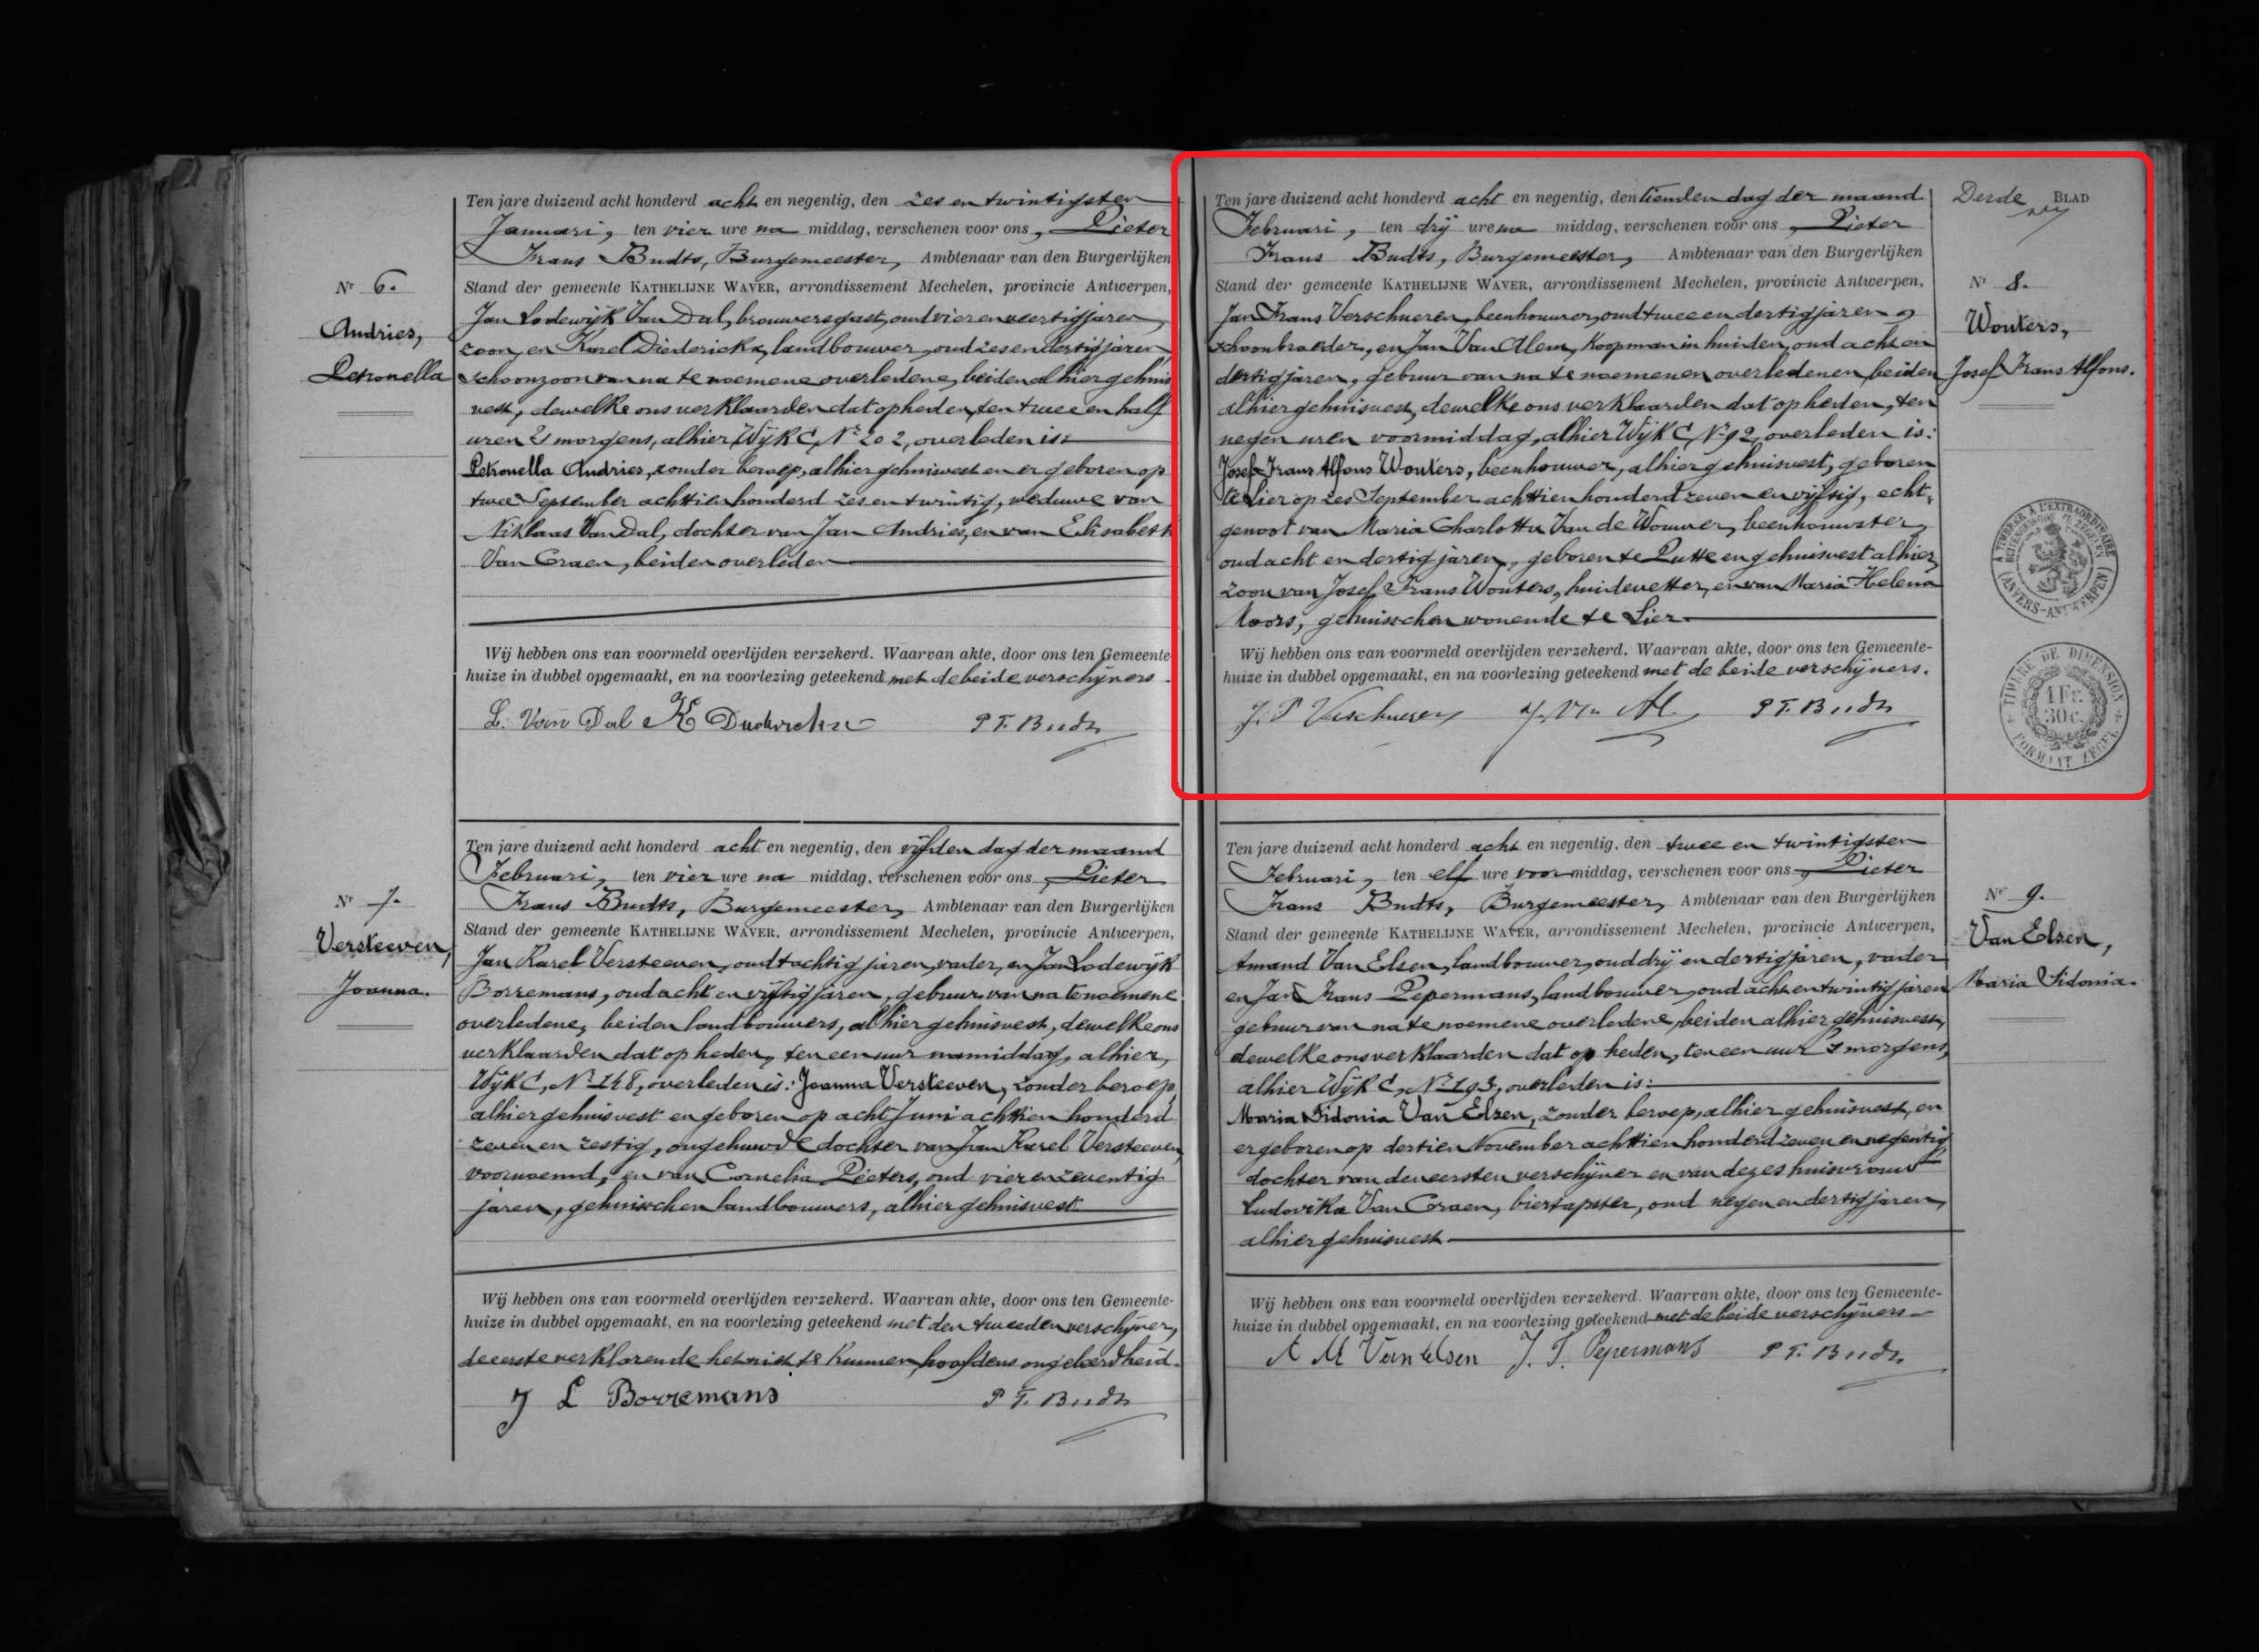 Ten jare duizend acht honderd acht en negentig, den zes en twintigsten
Januari, ten vier ure na middag, verschenen voor ons, Pieter
Frans Budts, Burgemeester, Ambtenaar van den Burgerlijken
Nr 6.
Stand der gemeente KATHELIJNE WAVER, arrondissement Mechelen, provincie Antwerpen,
Andries,
Petronella
Jan Lodewijk Van Dal, brouwersgast, oud vier en veertig jaren,
zoon, en Karel Diederickx, landbouwer, oud zes en dertig jaren,
schoonzoon van na te noemene overledene, beiden alhier gehuis
vest, dewelke ons verklaarden dat op heden, ten twee en half
uren 's morgens, alhier, Wijk C, Nr 202, overleden is:
Petronella Andries, zonder beroep, alhier gehuisvest en er geboren op
twee September achttien honderd zes en twintig, weduwe van
Niklaas Van Dal, dochter van Jan Andries, en van Elisabeth
Van Craen, beiden overleden
Wij hebben ons van voormeld overlijden verzekerd. Waarvan akte, door ons ten Gemeente-
huize in dubbel opgemaakt, en na voorlezing geteekend met de beide verschijners.
L. Van Dal K Diederickx P F. Budts
Ten jare duizend acht honderd acht en negentig, den vijfden dag der maand
Februari, ten vier ure na middag, verschenen voor ons, Pieter
Frans Budts, Burgemeester, Ambtenaar van den Burgerlijken
Nr 7.
Stand der gemeente KATHELIJNE WAVER, arrondissement Mechelen, provincie Antwerpen,
Versteeven,
Joanna.
Jan Karel Versteeven, oud tachtig jaren, vader, en Jan Lodewijk
Borremans, oud acht en vijftig jaren, gebuur van na te noemene
overledene, beiden landbouwers, alhier gehuisvest, dewelke ons
verklaarden dat op heden, ten een uur namiddag, alhier,
Wijk C, Nr 148, overleden is: Joanna Versteeven, zonder beroep,
alhier gehuisvest en geboren op acht Juni achttien honderd
zeven en zestig, ongehuwde dochter van Jan Karel Versteeven,
voornoemd, en van Cornelia Pieters, oud vier en zeventig
jaren, gehuisschen landbouwers, alhier gehuisvest.
Wij hebben ons van voormeld overlijden verzekerd. Waarvan akte, door ons ten Gemeente-
huize in dubbel opgemaakt, en na voorlezing geteekend met den tweeden verschijner,
de eerste verklarende het niet te kunnen, hoofdens ongeleerdheid.
J L Borremans P F. Budts
Ten jare duizend acht honderd acht en negentig, den tienden dag der maand
Derde BLAD
Februari, ten drij ure na middag, verschenen voor ons, Pieter
Frans Budts, Burgemeester, Ambtenaar van den Burgerlijken
Stand der gemeente KATHELIJNE WAVER, arrondissement Mechelen, provincie Antwerpen,
Nr 8.
Wouters,
Josef Frans Alfons.
Jan Frans Verschueren, beenhouwer, oud twee en dertig jaren,
schoonbroeder, en Jan Van Alem, koopman in huiden, oud acht en
dertig jaren, gebuur van na te noemenen overledenen, beiden
alhier gehuisvest, dewelke ons verklaarden dat op heden, ten
negen uren voormiddag, alhier Wijk C, Nr 92, overleden is:
Josef Frans Alfons Wouters, beenhouwer, alhier gehuisvest, geboren
te Lier op zes September achttien honderd zeven en vijftig, echt-
genoot van Maria Charlotta Van de Wouwer, beenhouwster,
oud acht en dertig jaren, geboren te Putte en gehuisvest alhier,
zoon van Josef Frans Wouters, huidevetter, en van Maria Helena
Moors, gehuisschen wonende te Lier.
Wij hebben ons van voormeld overlijden verzekerd. Waarvan akte, door ons ten Gemeente-
huize in dubbel opgemaakt, en na voorlezing geteekend met de beide verschijners.
J. F Verschueren J. Van Al. P F. Budts
A TIMBRER A L'EXTRAORDINAIRE
(ANVERS-ANTWERPEN)
TIMBRE DE DIMENSION
1 Fr.
30 c.
FORMAAT ZEGEL
Ten jare duizend acht honderd acht en negentig, den twee en twintigsten
Februari, ten elf ure voor middag, verschenen voor ons, Pieter
Frans Budts, Burgemeester, Ambtenaar van den Burgerlijken
Nr 9.
Stand der gemeente KATHELIJNE WAVER, arrondissement Mechelen, provincie Antwerpen,
Van Elsen,
Maria Sidonia.
Amand Van Elsen, landbouwer, oud drij en dertig jaren, vader
en Jan Frans Pepermans, landbouwer, oud acht en twintig jaren
gebuur van na te noemene overledene, beiden alhier gehuisvest,
dewelke ons verklaarden dat op heden, ten een uur 's morgens,
alhier Wijk C, Nr 193, overleden is:
Maria Sidonia Van Elsen, zonder beroep, alhier gehuisvest, en
er geboren op dertien November achttien honderd zeven en negentig,
dochter van den eersten verschijner en van dezes huisvrouw
Ludovika Van Craen, biertapster, oud negen en dertig jaren,
alhier gehuisvest.
Wij hebben ons van voormeld overlijden verzekerd. Waarvan akte, door ons ten Gemeente-
huize in dubbel opgemaakt, en na voorlezing geteekend met de beide verschijners
A M Van Elsen J. F. Pepermans P F. Budts